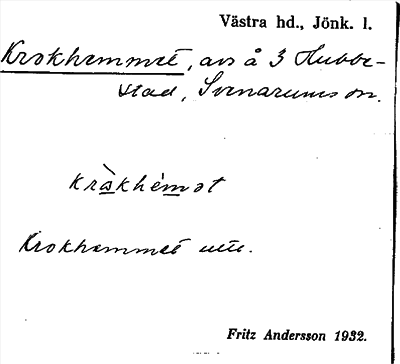 Västra hd., Jönk. l.
Krokhemmet, avs å 3 Hubbe-
stad, Svenarums sn.
kràkhémot
Krokhemmet
Fritz Andersson 1932.